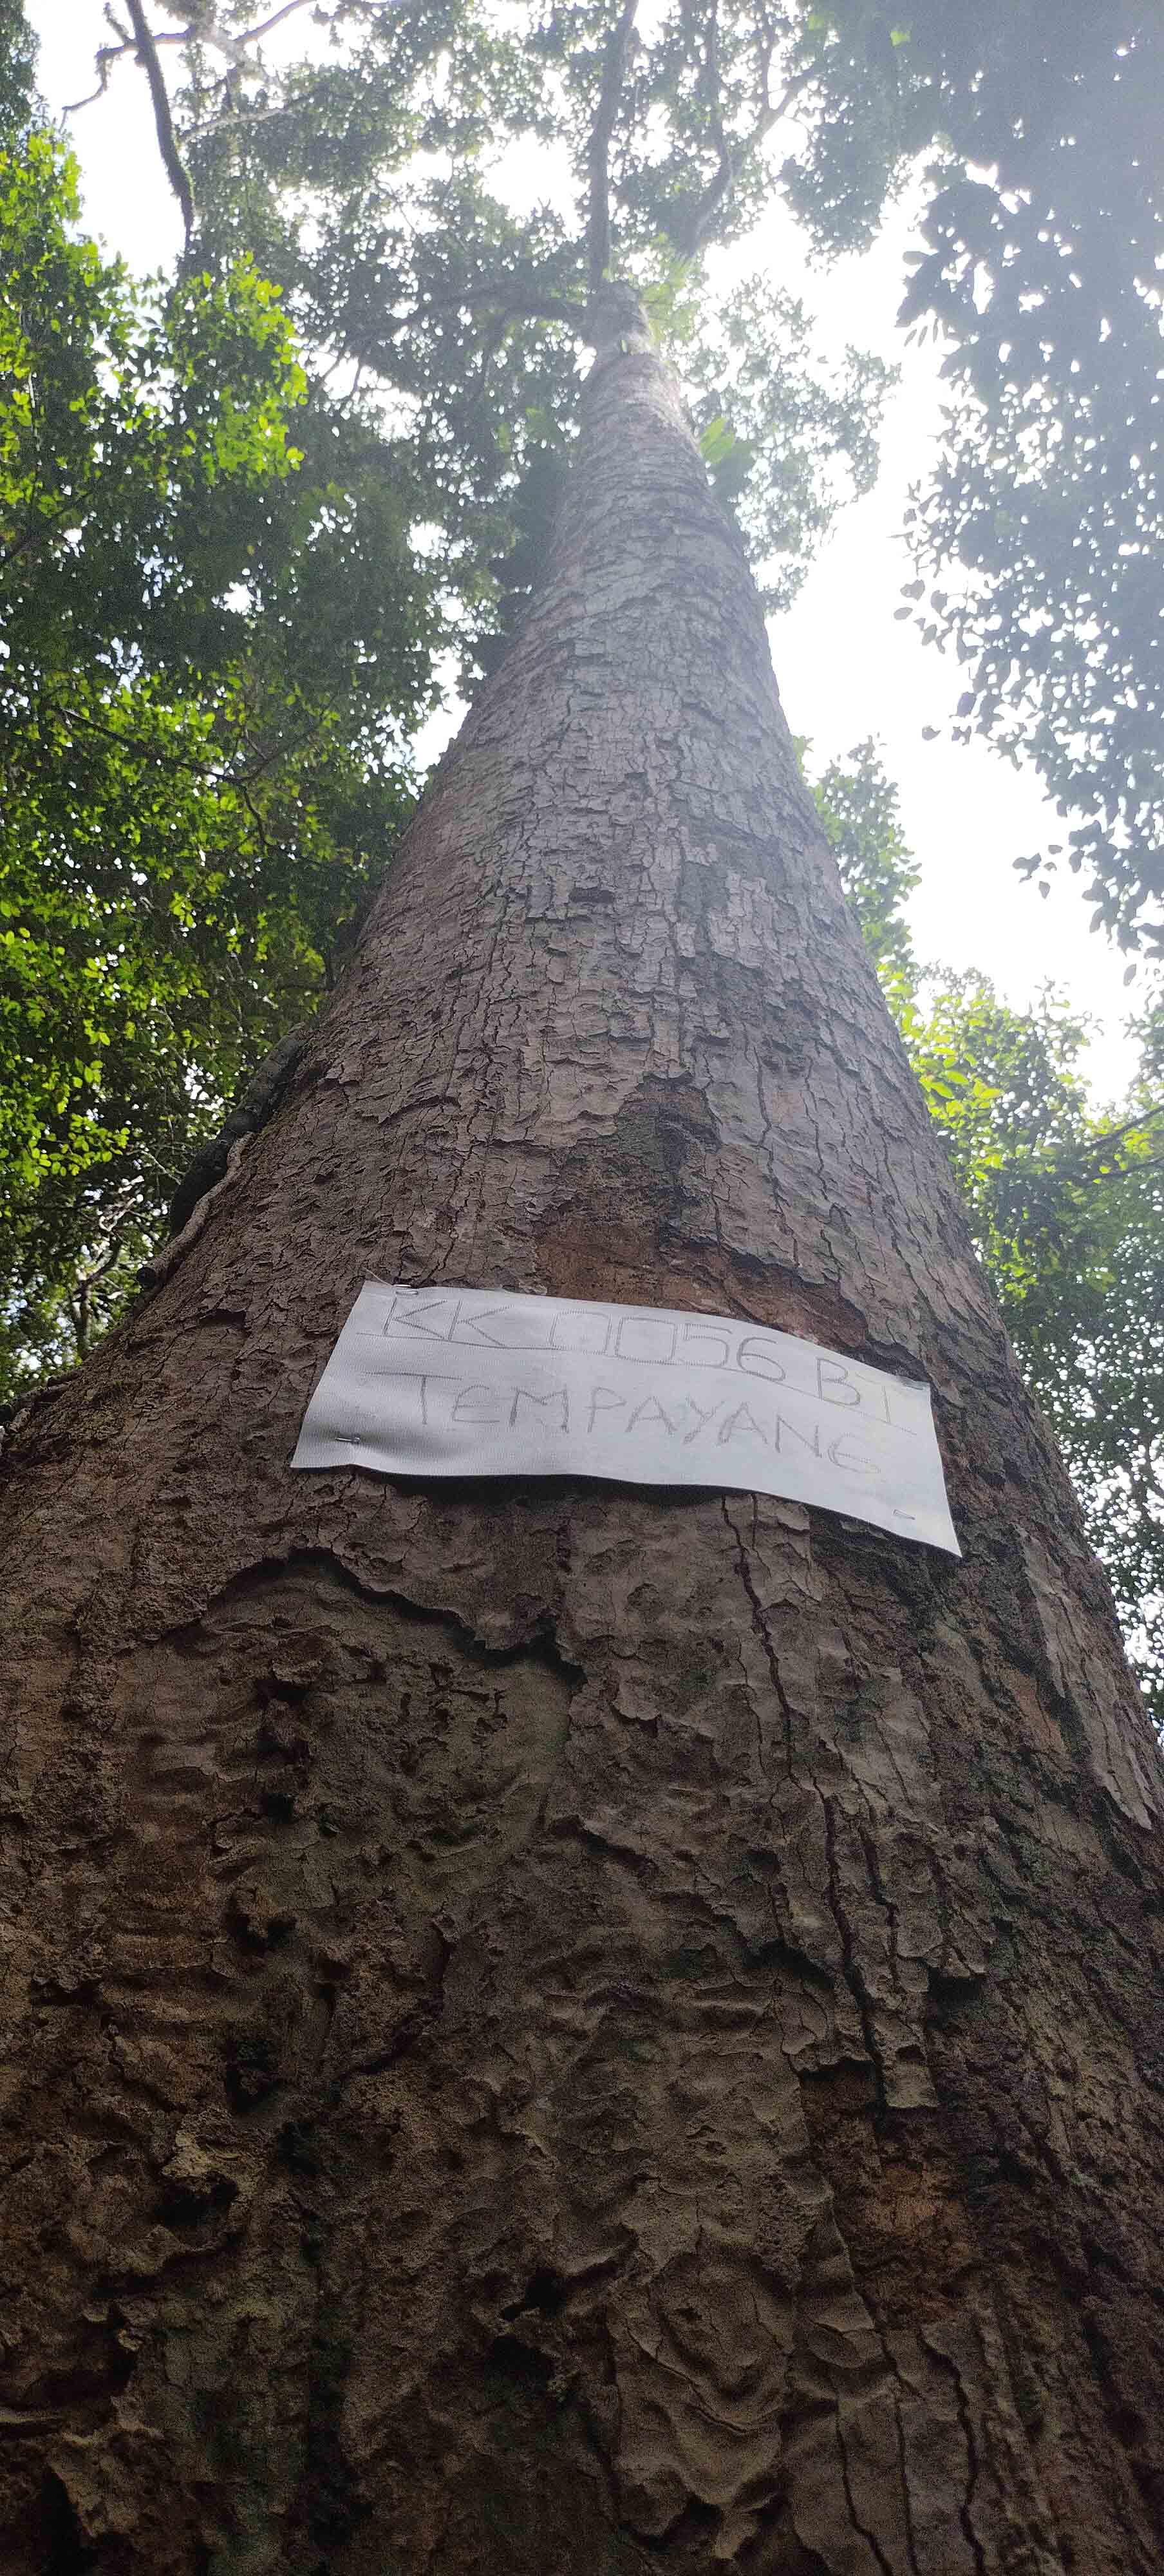 KK 0056 BT
TEMPAYANG